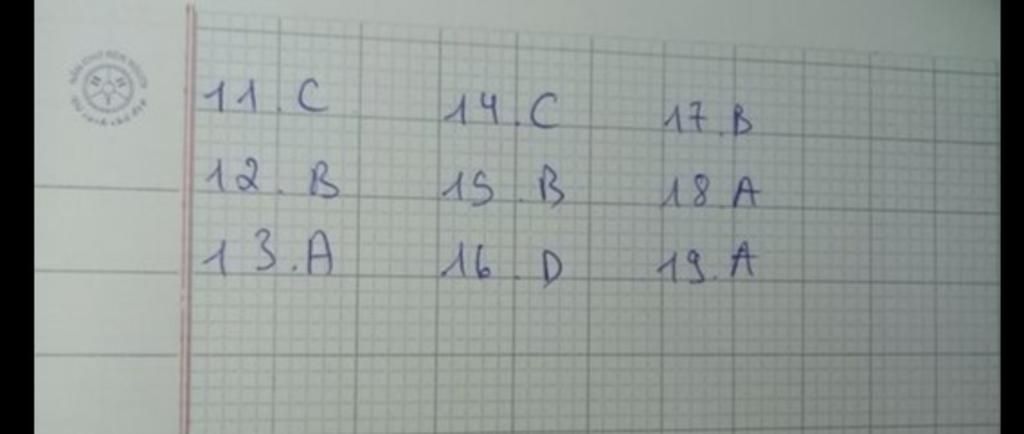 11. C 14. C 17. B
12. B 15. B 18 A
13. A 16. D 19. A